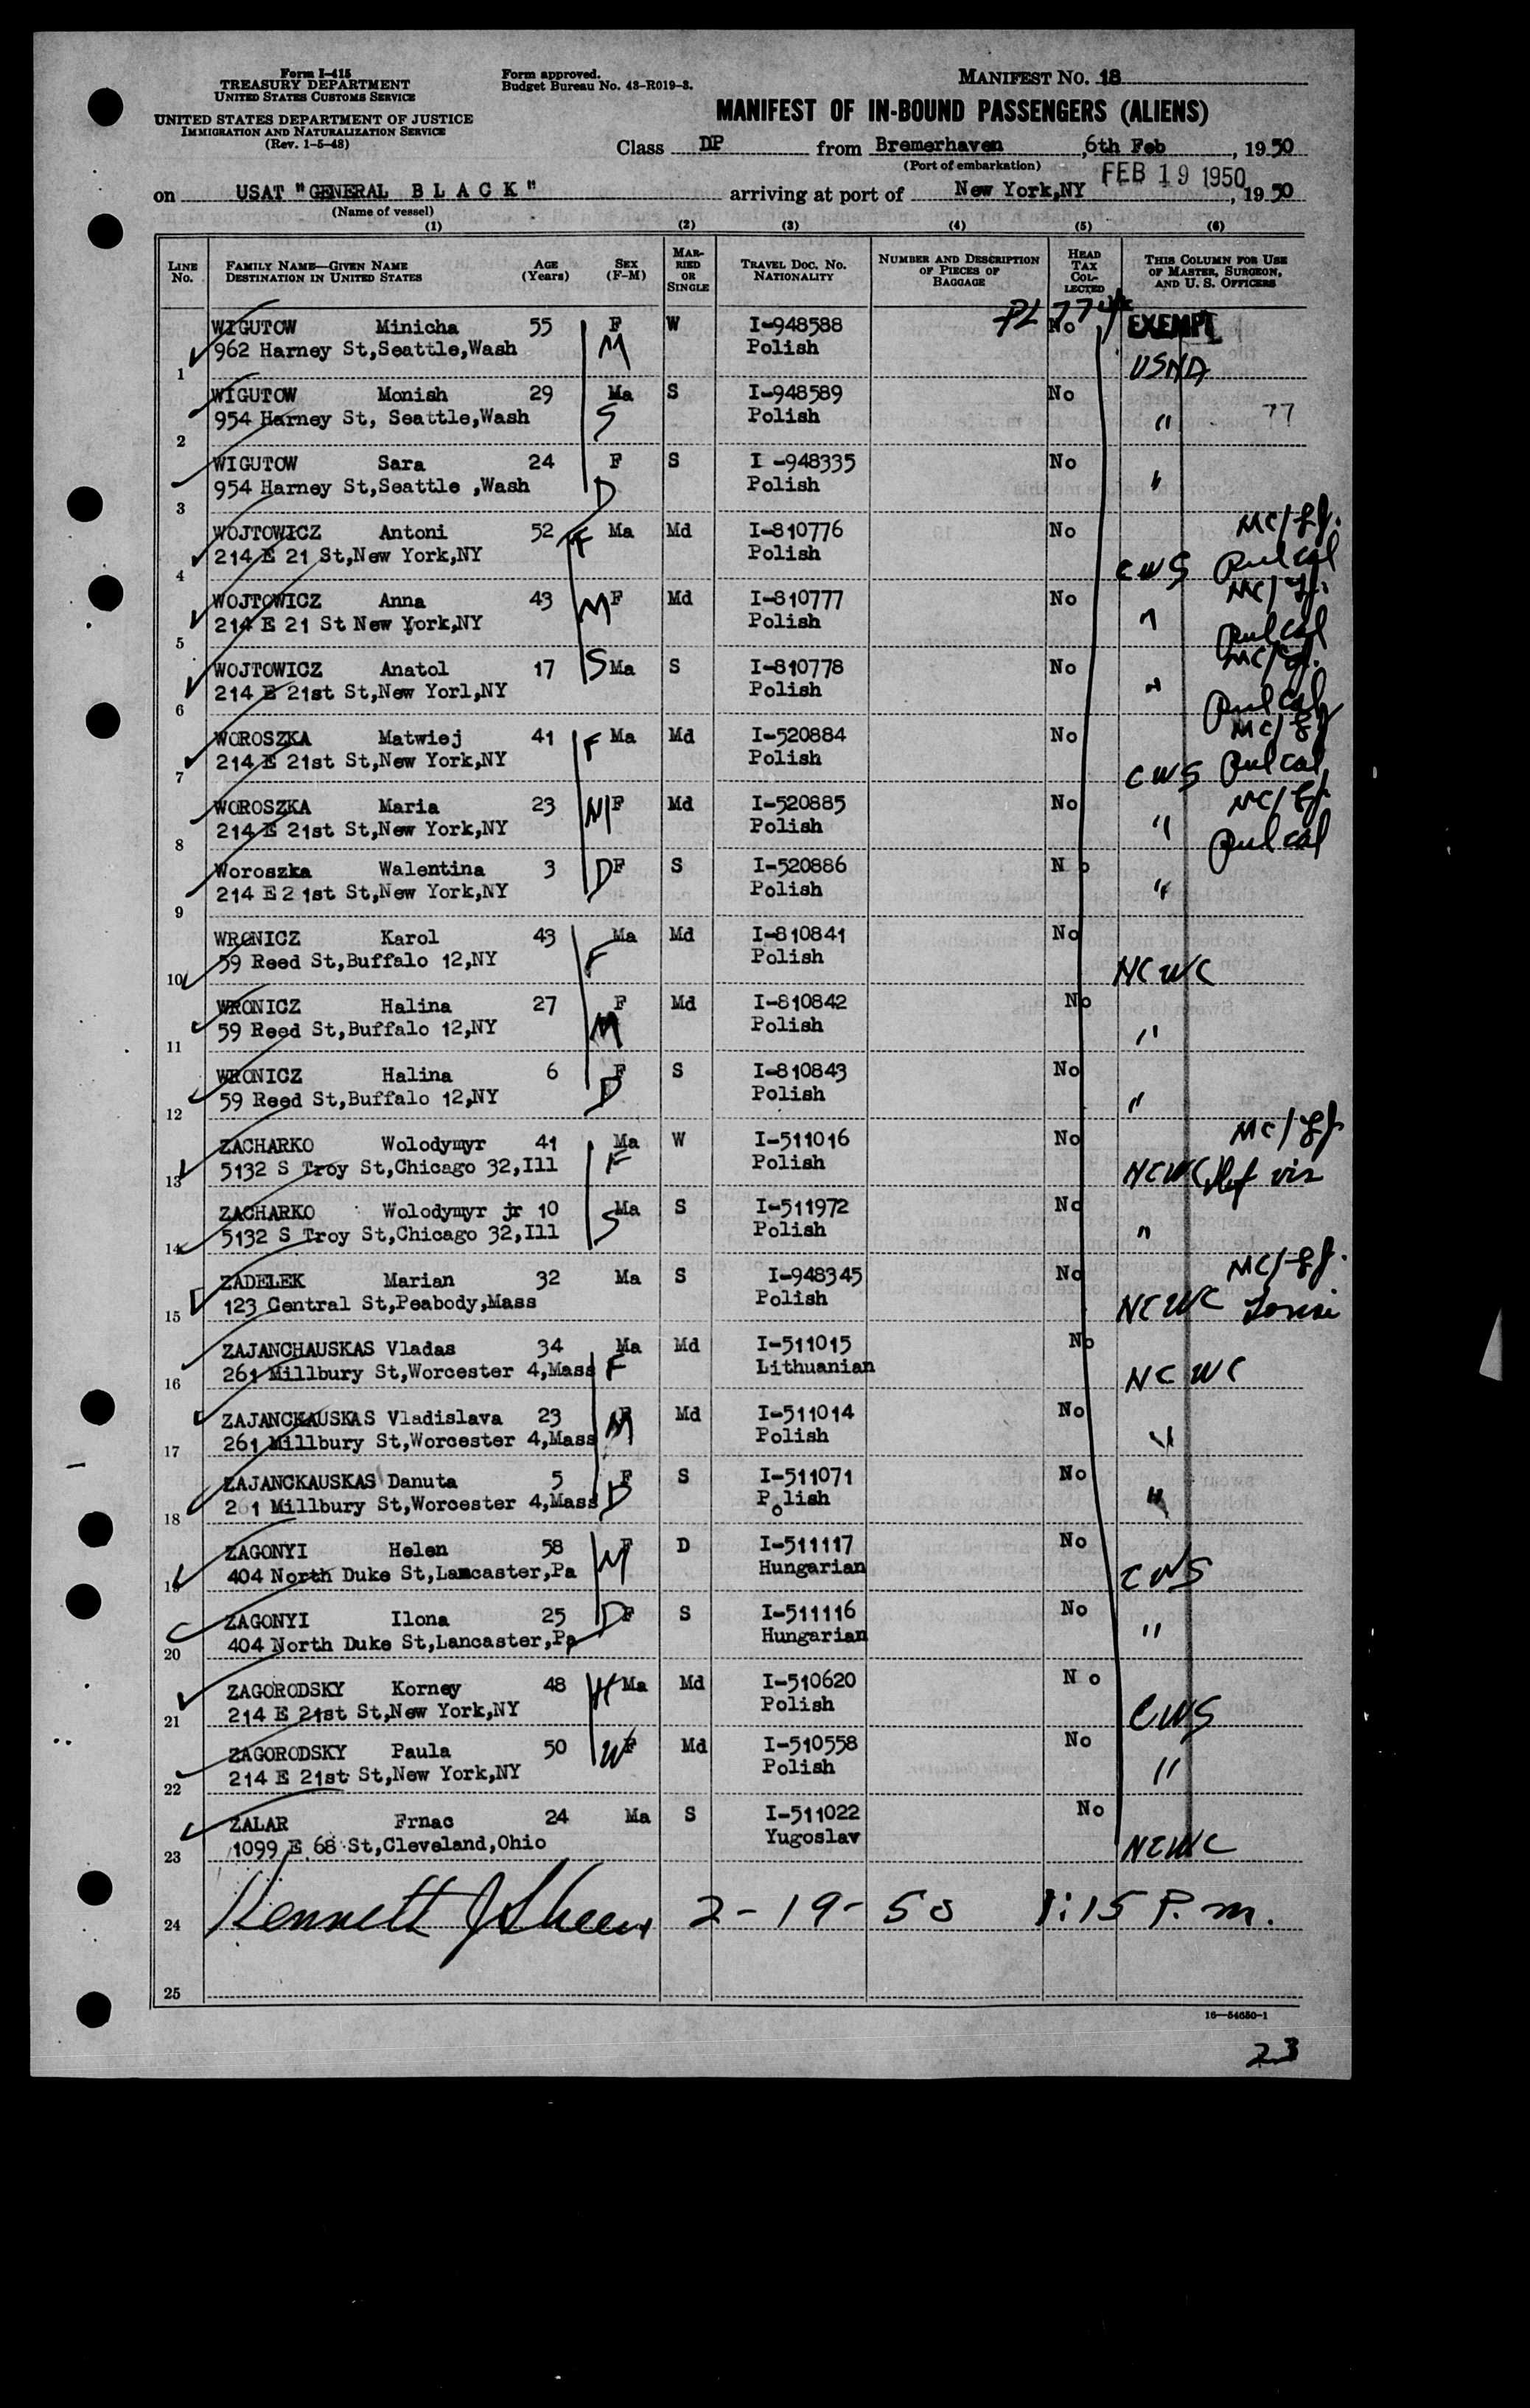 Form I-415
TREASURY DEPARTMENT
UNITED STATES CUSTOMS SERVICE
UNITED STATES DEPARTMENT OF JUSTICE
IMMIGRATION AND NATURALIZATION SERVICE
(Rev. 1-5-48)
Form approved.
Budget Bureau No. 43-R019-3.
MANIFEST NO. 18
MANIFEST OF IN-BOUND PASSENGERS (ALIENS)
Class DP from Bremerhaven ,6th Feb , 19 50
(Port of embarkation)
FEB 19 1950
on USAT "GENERAL B L A C K" arriving at port of New York,NY , 19 50
(Name of vessel)
(1) (2) (3) (4) (5) (6)
LINE NO. FAMILY NAME—GIVEN NAME DESTINATION IN UNITED STATES AGE (Years) SEX (F-M) MARRIED OR SINGLE TRAVEL DOC. NO. NATIONALITY NUMBER AND DESCRIPTION OF PIECES OF BAGGAGE HEAD TAX COLLECTED THIS COLUMN FOR USE OF MASTER, SURGEON, AND U. S. OFFICERS
PL 774
WIGUTOW Minicha 55 F W I-948588 No EXEMPT
1 962 Harney St,Seattle,Wash M Polish USNA
WIGUTOW Monish 29 Ma S I-948589 No
2 954 Harney St, Seattle,Wash S Polish " 77
WIGUTOW Sara 24 F S I -948335 No
3 954 Harney St,Seattle ,Wash D Polish "
WOJTOWICZ Antoni 52 F Ma Md I-810776 No
4 214 E 21 St,New York,NY Polish CWS Pul cal
WOJTOWICZ Anna 43 M F Md I-810777 No
5 214 E 21 St New York,NY Polish " Pul cal
WOJTOWICZ Anatol 17 S Ma S I-810778 No
6 214 E 21st St,New Yorl,NY Polish " Pul cal
WOROSZKA Matwiej 41 F Ma Md I-520884 No
7 214 E 21st St,New York,NY Polish CWS Pul cal
WOROSZKA Maria 23 M F Md I-520885 No
8 214 E 21st St,New York,NY Polish " Pul cal
Woroszka Walentina 3 D F S I-520886 N o
9 214 E 2 1st St,New York,NY Polish "
WRONICZ Karol 43 Ma Md I-810841 No
10 59 Reed St,Buffalo 12,NY F Polish NCWC
WRONICZ Halina 27 F Md I-810842 No
11 59 Reed St,Buffalo 12,NY M Polish "
WRONICZ Halina 6 F S I-810843 No
12 59 Reed St,Buffalo 12,NY D Polish "
ZACHARKO Wolodymyr 41 Ma W I-511016 No
13 5132 S Troy St,Chicago 32,Ill F Polish NCWC Def vis
ZACHARKO Wolodymyr jr 10 Ma S I-511972 No
14 5132 S Troy St,Chicago 32,Ill S Polish "
ZADELEK Marian 32 Ma S I-948345 No
15 123 Central St,Peabody,Mass Polish NCWC
ZAJANCHAUSKAS Vladas 34 Ma Md I-511015 No
16 261 Millbury St,Worcester 4,Mass F Lithuanian NCWC
ZAJANCKAUSKAS Vladislava 23 F Md I-511014 No
17 261 Millbury St,Worcester 4,Mass M Polish "
ZAJANCKAUSKAS Danuta 5 F S I-511071 No
18 261 Millbury St,Worcester 4,Mass D Polish "
ZAGONYI Helen 58 F D I-511117 No
19 404 North Duke St,Lamcaster,Pa M Hungarian CWS
ZAGONYI Ilona 25 D F S I-511116 No
20 404 North Duke St,Lancaster,Pa Hungarian "
ZAGORODSKY Korney 48 H Ma Md I-510620 N o
21 214 E 21st St,New York,NY Polish CWS
ZAGORODSKY Paula 50 W F Md I-510558 No
22 214 E 21st St,New York,NY Polish "
ZALAR Frnac 24 Ma S I-511022 No
23 1099 E 68 St,Cleveland,Ohio Yugoslav NCWC
24 Kennett J Sheen 2-19-50 1:15 P.m.
25
16—54650-1
23